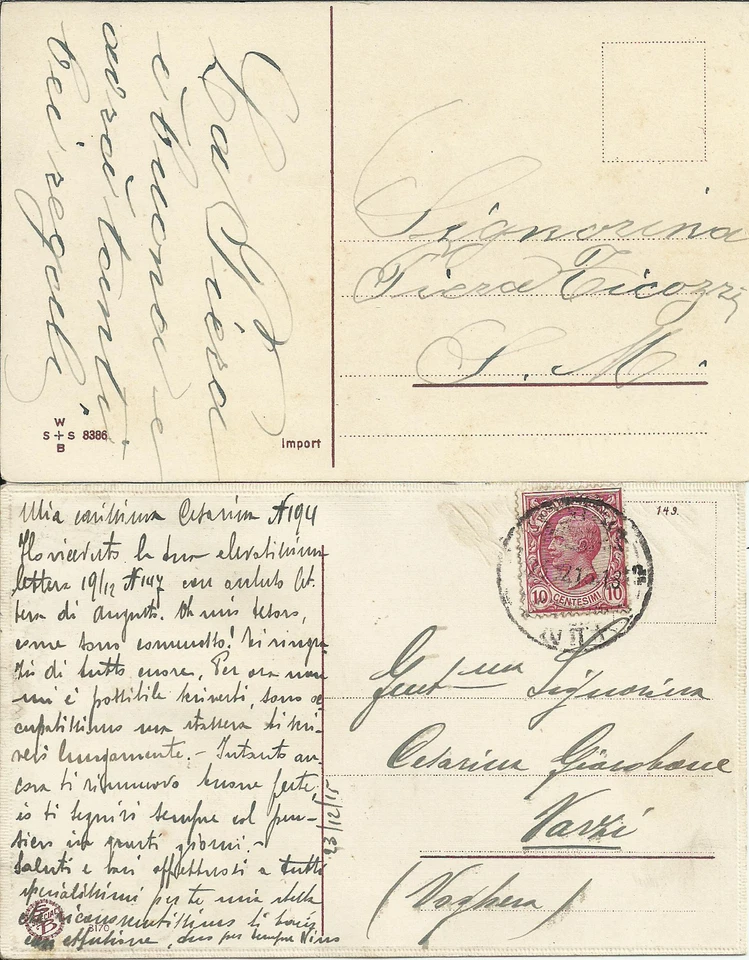 La Piera
è buona e
avrà tanti
bei regali
W
S + S 8386
B
Import
Signorina
Piera Ticozzi
S. M.
Mia carissima Cesarina N 194
Ho ricevuto la tua
lettera 19/12 N 147 con
di Augusto. Oh mio tesoro,
come sono commosso! Ti ringra
zio di tutto cuore. Per ora non
mi è possibile scriverti, sono oc
cupatissimo ma stassera ti scri-
verò lungamente. - Intanto an
cora ti rinnuovo buone feste
io ti seguirò sempre col pen-
siero in questi giorni. -
Saluti e baci affettuosi a tutti
specialissimi per te mia stella
riconoscentissimo ti bacio
con effusione, tuo per sempre Nino
23/12/15
8170
149.
10 CENTESIMI 10
Gent.ma Signorina
Cesarina Giacobone
Varzi
(Voghera)